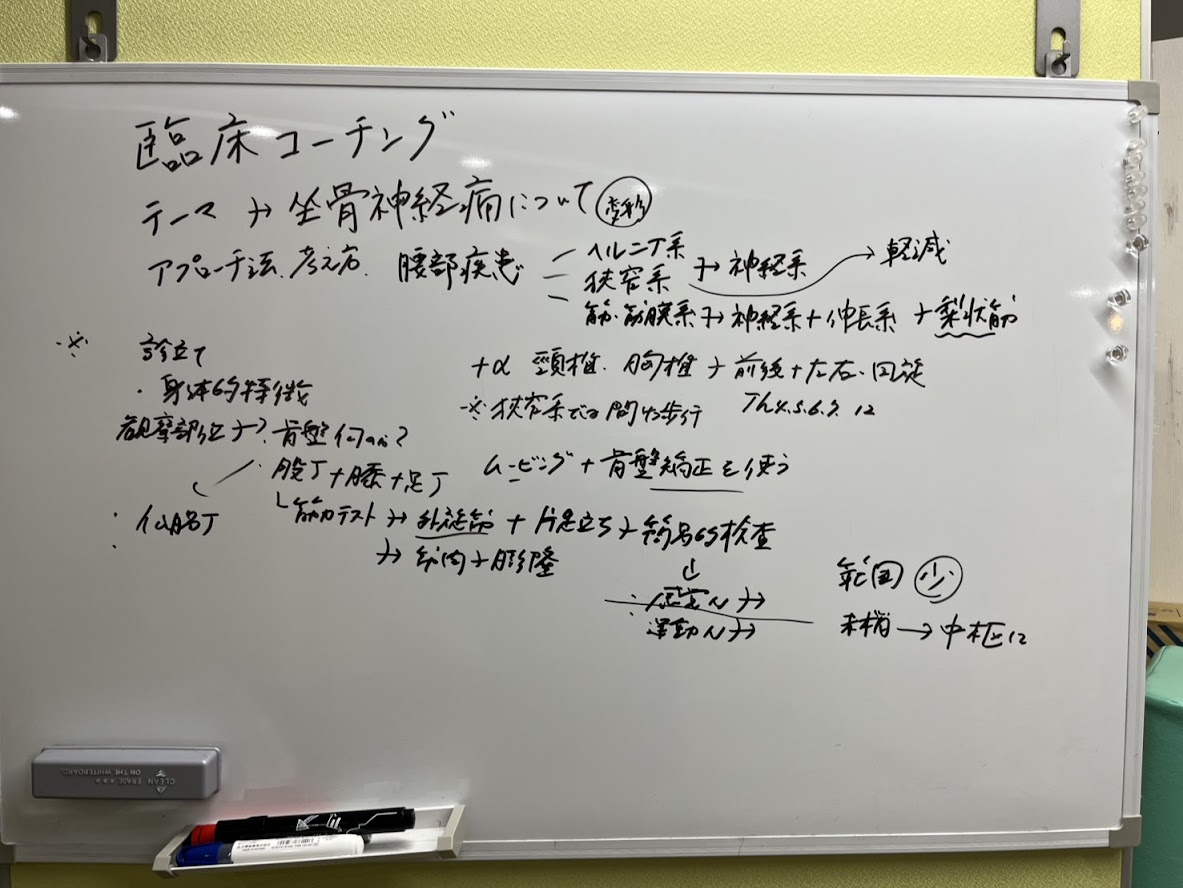 臨床コーチング
テーマ → 坐骨神経痛について 変形
アプローチ法、考え方、腰部疾患
ヘルニア系
狭窄系 → 神経系 → 軽減
筋・筋膜系 → 神経系+伸長系+梨状筋
※ 診立て
・身体的特徴
+α 頸椎、胸椎 → 前後+左右・回旋
※狭窄系での間欠歩行 Th4.5.6.7. 12
観察部位→ 骨盤
・股丁+膝+足丁
ムービング+骨盤矯正を使う
・仙腸丁
筋力テスト → 外旋筋+片足立ち+
検査
→ 筋肉+膨隆
↓
感覚N →
運動N →
範囲 少
末梢 → 中枢に
CLEAN ERASE
ON THE WHITEBOARD